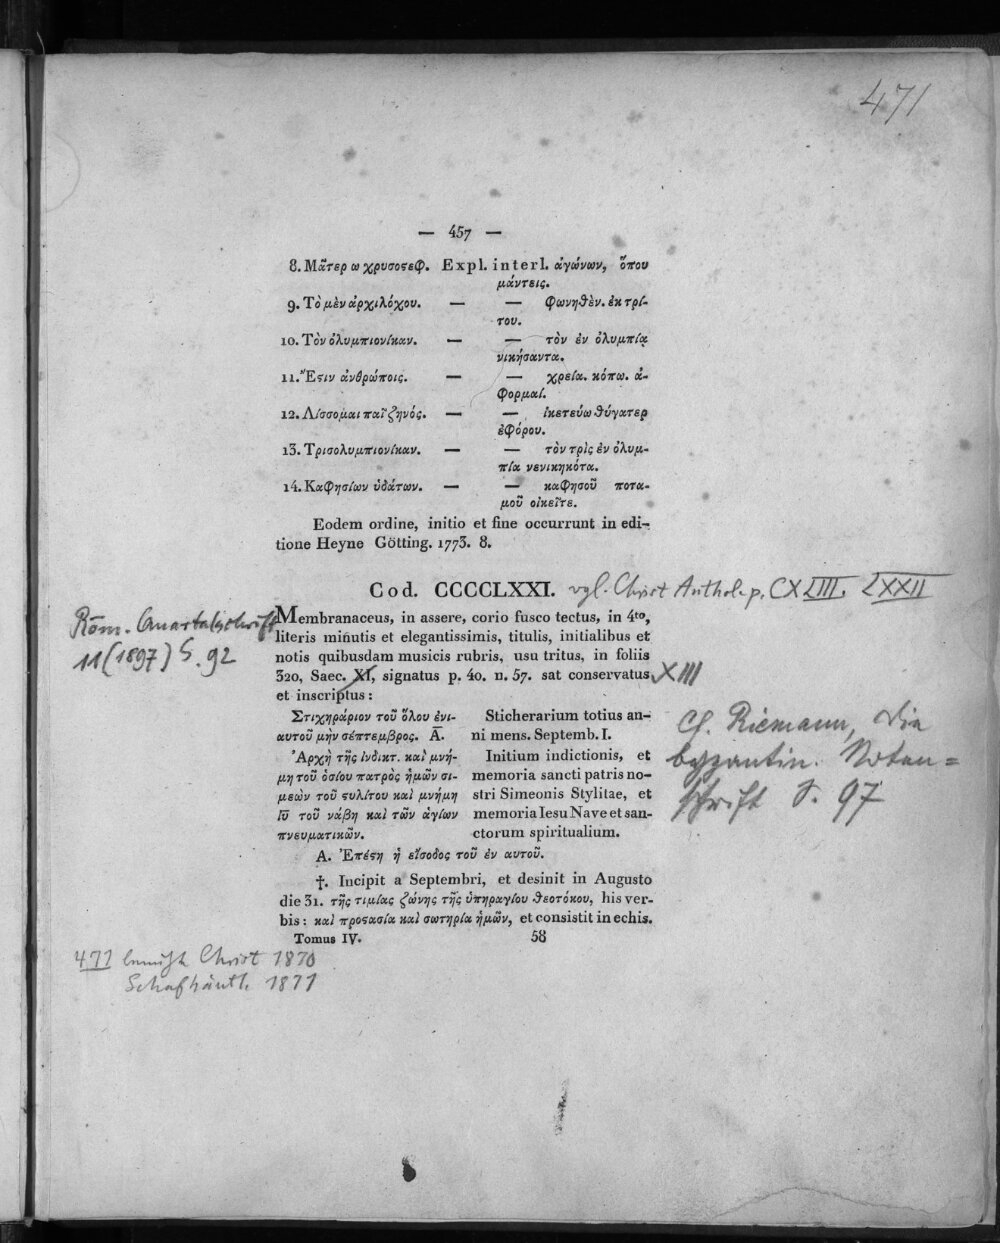 471
— 457 —
8. Μᾶτερ ω χρυσοϛεφ. Expl. interl. ἀγώνων, ὅπου
μάντεις.
9. Τὸ μὲν ἀρχιλόχου. — — φωνηθὲν. ἐκ τρί-
του.
10. Τὸν ὀλυμπιονίκαν. — — τὸν ἐν ὀλυμπίᾳ
νικήσαντα.
11. Ἔϛιν ἀνθρώποις. — — χρεία. κόπω. ἀ-
φορμαί.
12. Λίσσομαι παῖ ζηνός. — — ἱκετεύω θύγατερ
ἐφόρου.
13. Τρισολυμπιονίκαν. — — τὸν τρὶς ἐν ὀλυμ-
πία νενικηκότα.
14. Καφησίων ὑδάτων. — — καφησοῦ ποτα-
μοῦ οἰκεῖτε.
Eodem ordine, initio et fine occurrunt in edi-
tione Heyne Götting. 1773. 8.
Cod. CCCCLXXI. vgl. Christ Anthol. p. CXLIII. LXXII
Röm. Quartalschrift
11 (1897) S. 92
Membranaceus, in assere, corio fusco tectus, in 4to,
literis minutis et elegantissimis, titulis, initialibus et
notis quibusdam musicis rubris, usu tritus, in foliis
320, Saec. XI, signatus p. 40. n. 57. sat conservatus, XIII
et inscriptus:
Στιχηράριον τοῦ ὅλου ἐνι-
αυτοῦ μὴν σέπτεμβρος. Α̅.
Ἀρχὴ τῆς ἰνδικτ. καὶ μνή-
μη τοῦ ὁσίου πατρὸς ἡμῶν σι-
μεὼν τοῦ ϛυλίτου καὶ μνήμη
ἰῦ τοῦ νάβη καὶ τῶν ἁγίων
πνευματικῶν.
Sticherarium totius an-
ni mens. Septemb. I.
Initium indictionis, et
memoria sancti patris no-
stri Simeonis Stylitae, et
memoria Iesu Nave et san-
ctorum spiritualium.
Cf. Riemann, Die
byzantin. Noten=
schrift S. 97
Α. Ἐπέϛη ἡ εἴσοδος τοῦ ἐν αυτοῦ.
†. Incipit a Septembri, et desinit in Augusto
die 31. τῆς τιμίας ζώνης τῆς ὑπηραγίου θεοτόκου, his ver-
bis: καὶ προϛασία καὶ σωτηρία ἡμῶν, et consistit in echis.
Tomus IV. 58
471 benützt Christ 1870
Schafhäutl. 1871